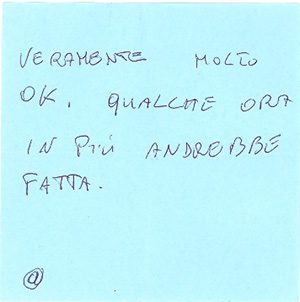 VERAMENTE MOLTO
OK. QUALCHE ORA
IN PIÙ ANDREBBE
FATTA.
@